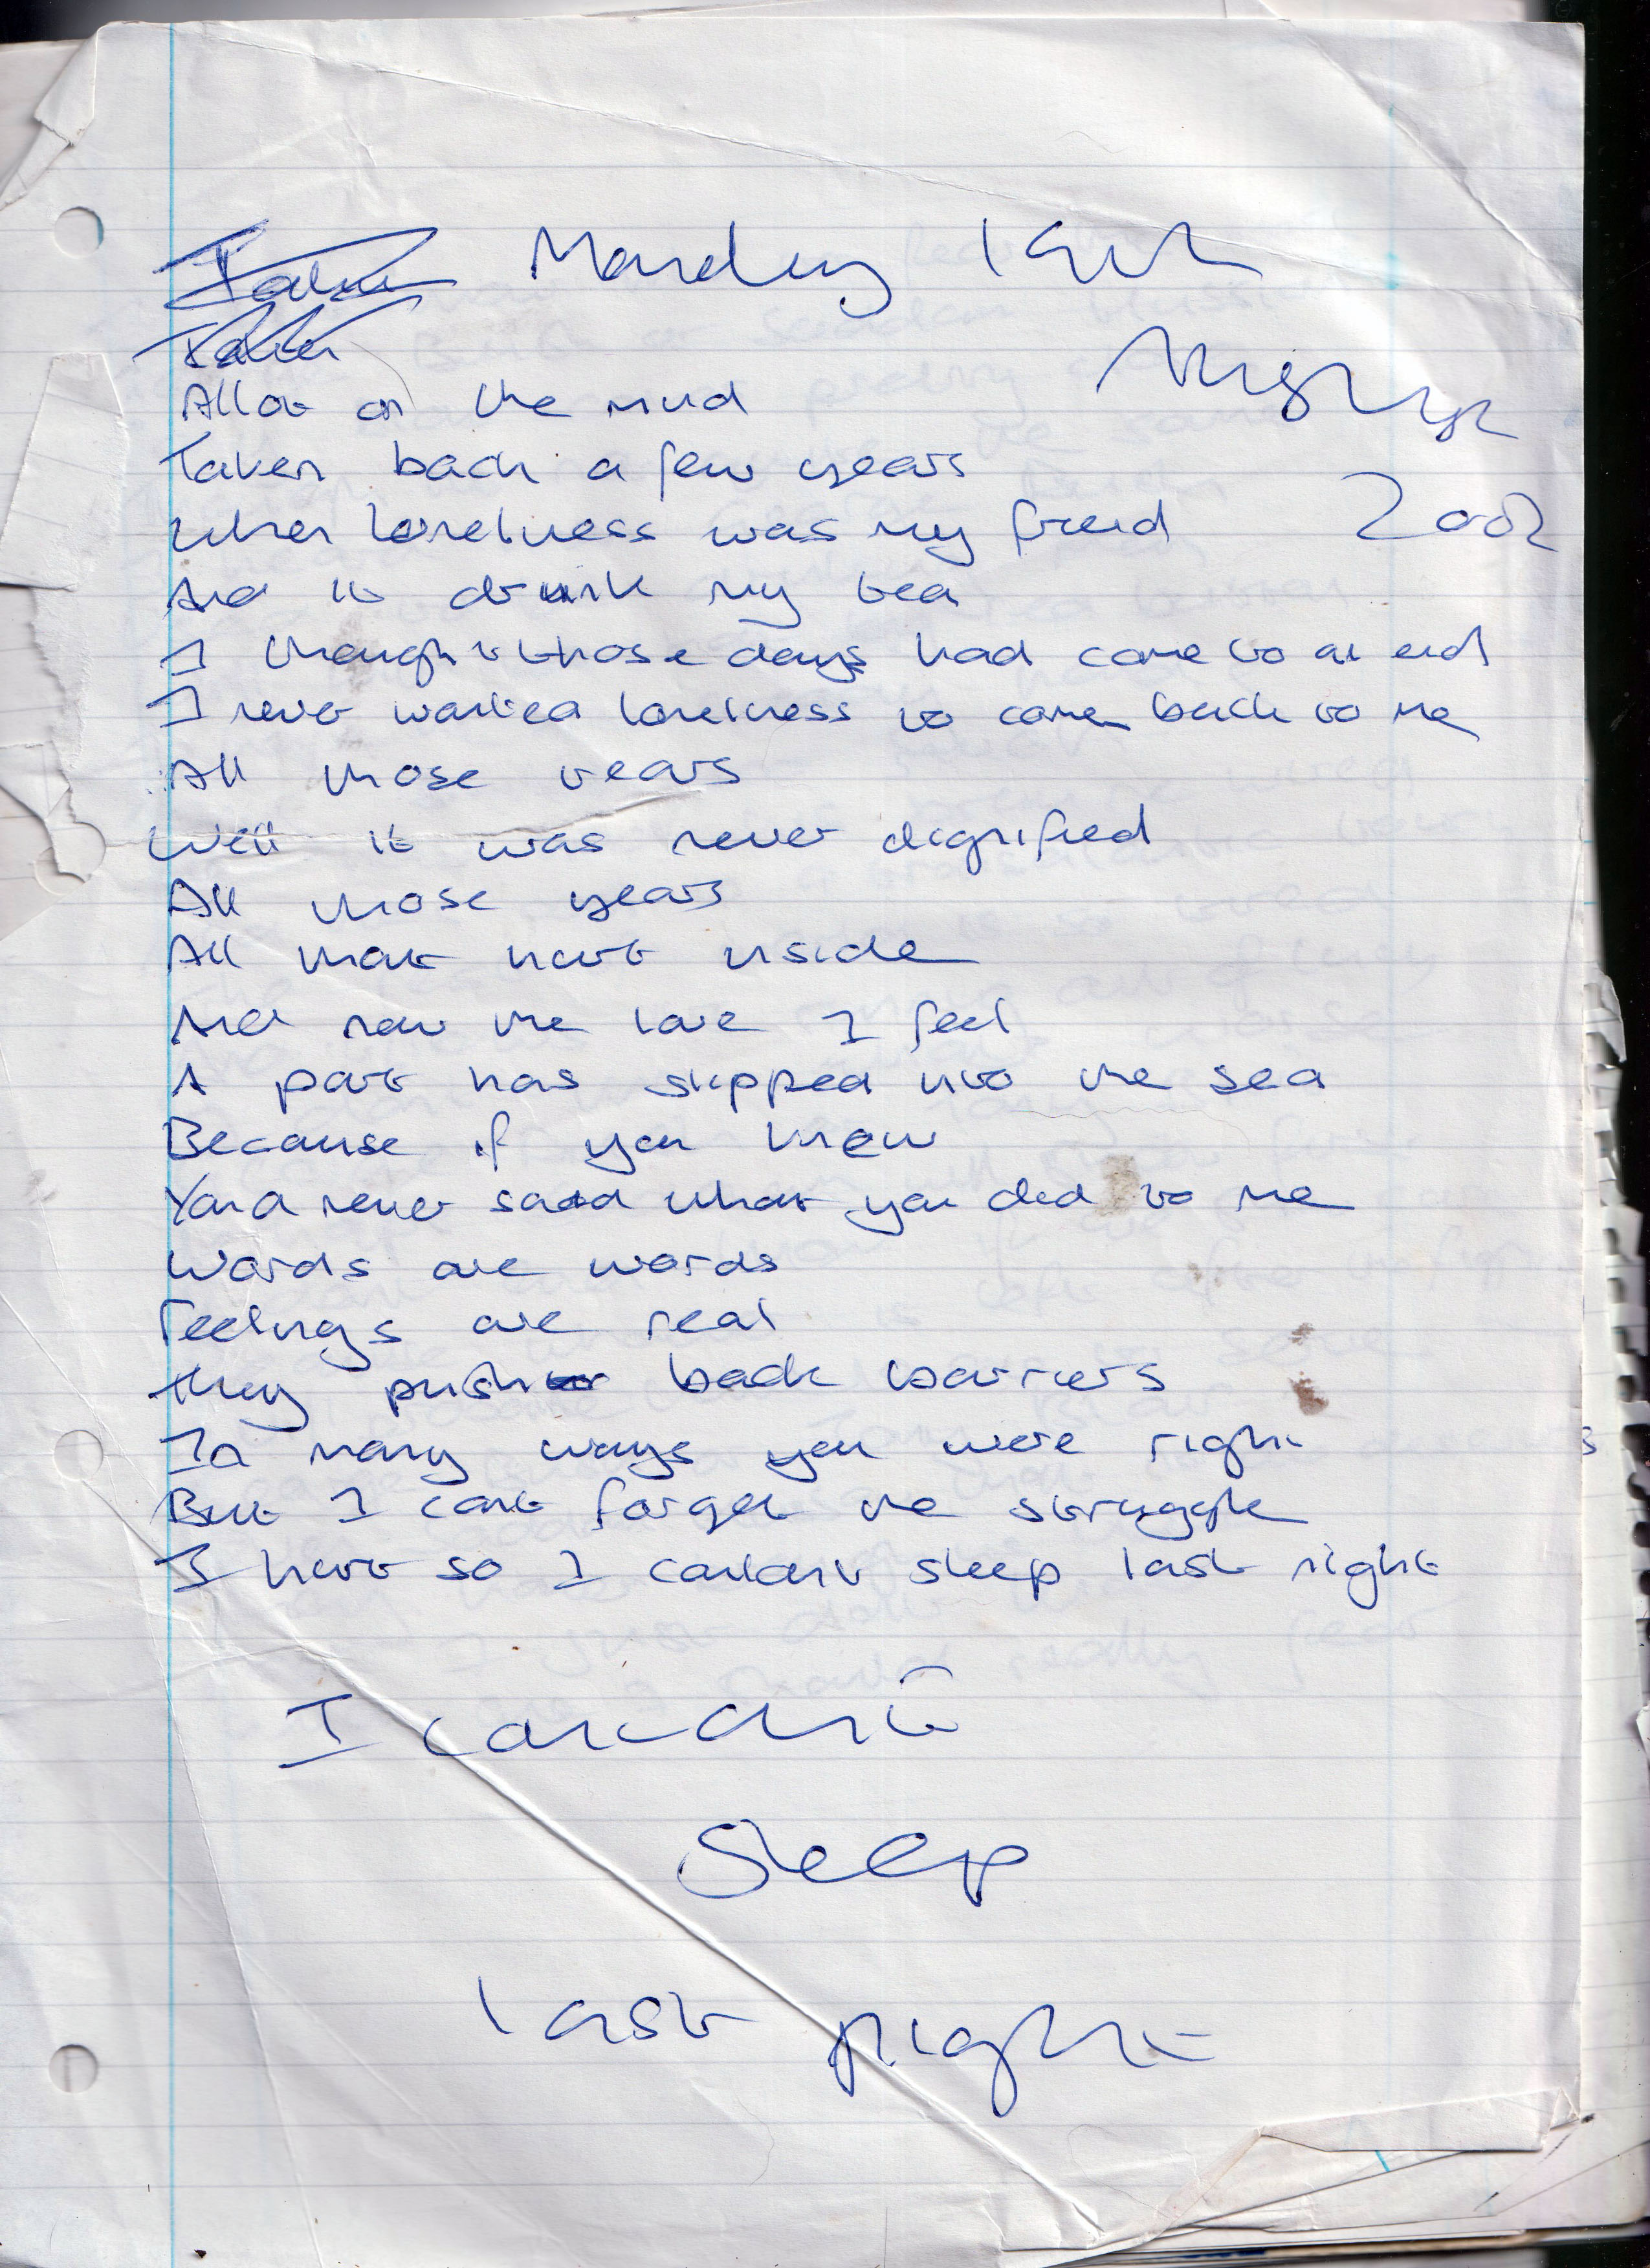 Monday 19th
August
2002
Alot on the mind
Taken back a few years
When loneliness was my freind
And it drunk my tea
I thought those days had come to an end
I never wanted loneliness to come back to me
All those years
Well it was never dignified
All those years
All that hurt inside
And now the love I feel
A part has slipped into the sea
Because if you knew
Youd never said what you did to me
Words are words
Feelings are real
they push back barriers
In many ways you were right
But I cant forget the struggle
I hurt so I couldnt sleep last night
I couldnt
Sleep
last night